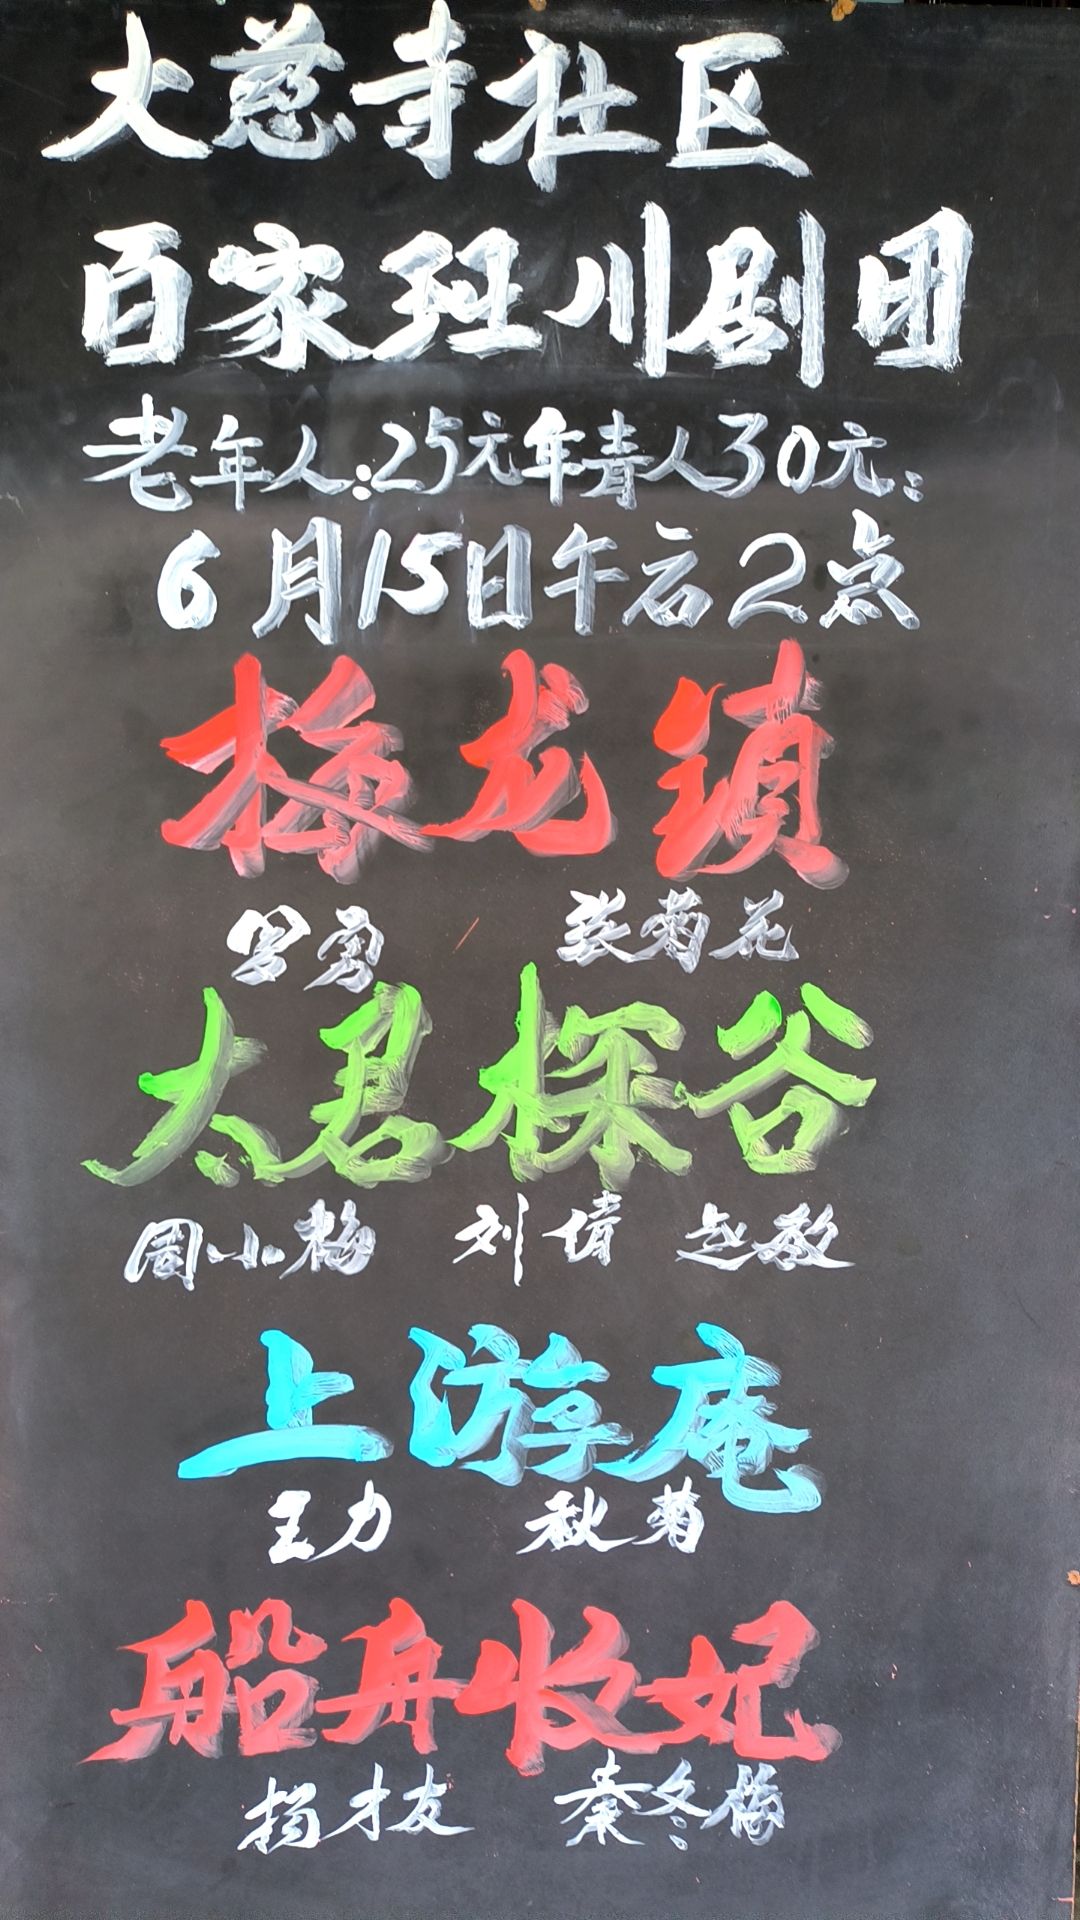 大慈寺社区
百家班川剧团
老年人:25元年青人30元:
6月15日午后2点
龙锁
罗勇 张菊花
太君探谷
周小梅 刘倩 赵敏
上游庵
王力 秋菊
船舟收妃
杨才友 秦冬梅